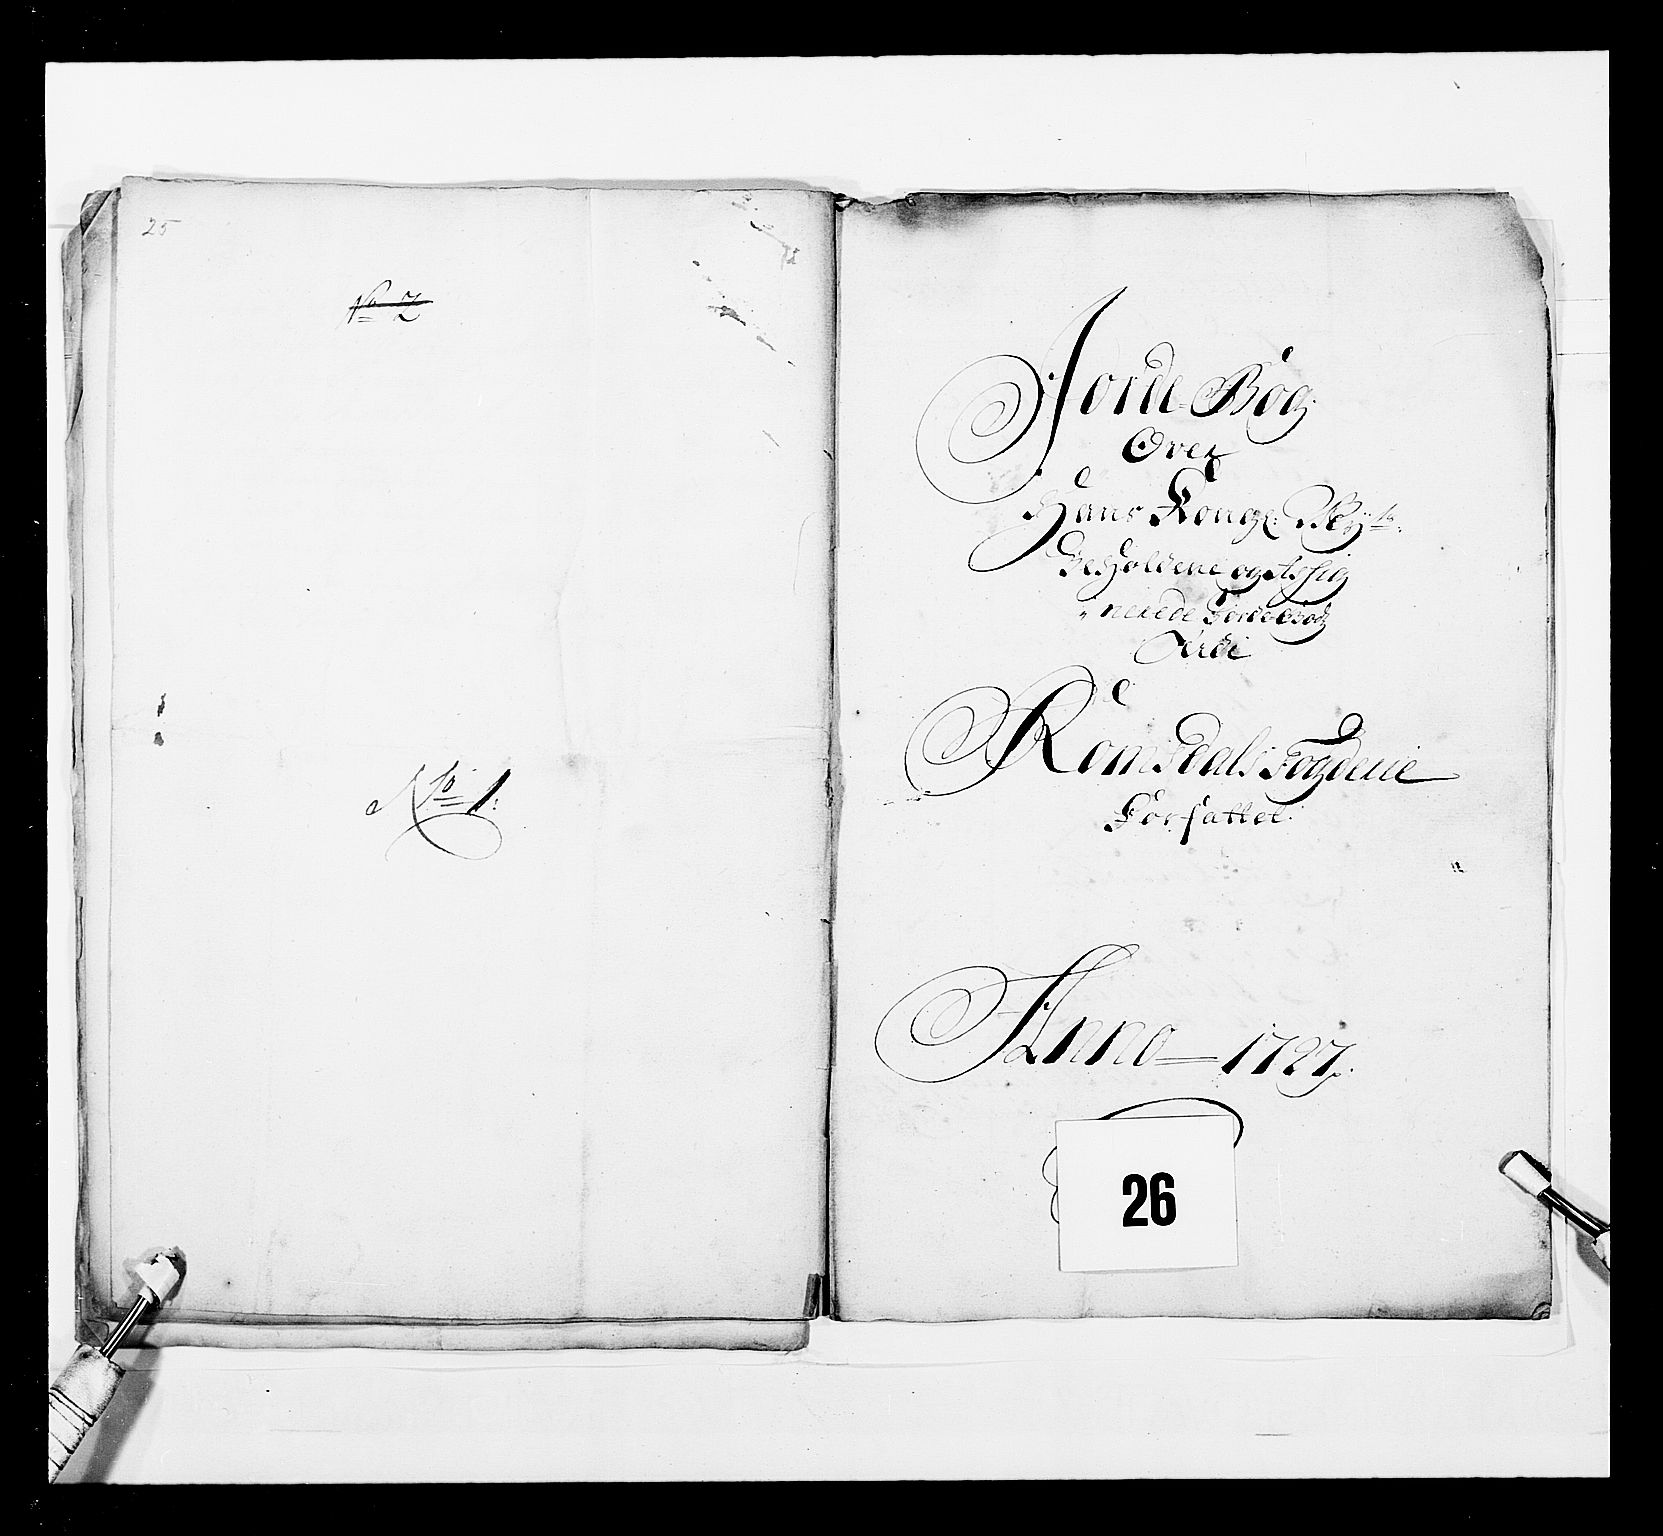 25
No 2
No 1:
Jorde-Bog
Over
Hans Konge: May:ts:
Beholdene og Assig
nerede Jordegods
Udi
Romsdals Fogderie
Forfattet.
Anno 1727.
26